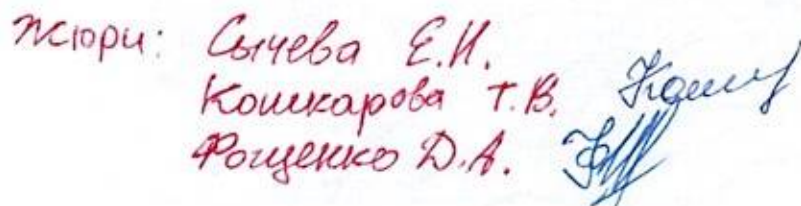 Жюри: Сычева Е.И.
Кошкарова Т.В.
Фощенко Д.А.